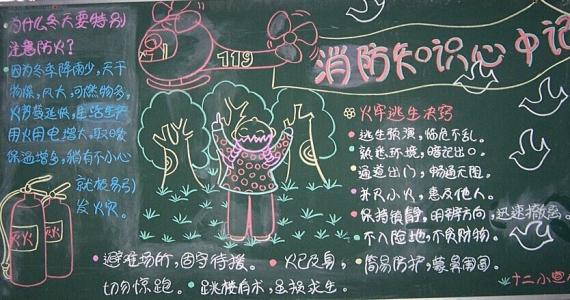 为什么冬天要特别
注意防火？
因为冬季降雨少，天干
物燥，风大，可燃物多，
火势蔓延快，且生活生产
用火用电增大，取暖
保温增多，稍有不小心
就极易引
发火灾。
119
消防知识心中记
火牢逃生决窍
逃生预演，临危不乱。
熟悉环境，暗记出口。
通道出门，畅通无阻。
扑灭小火，惠及他人。
保持镇静，明辨方向，迅速撤离。
不入险地，不贪财物。
灭火
灭火
避难场所，固守待援。
火已及身，
切勿惊跑。
简易防护，蒙鼻匍匐。
跳楼有术，虽损求生。
十二小